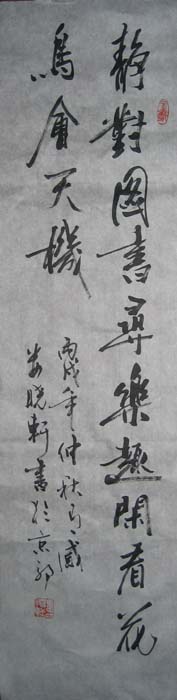 静對圖書尋樂趣閑看花
鳥會天機
丙戌年仲秋
晓軒書於京郊